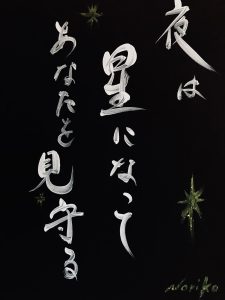 夜は
星になって
あなたを見守る
Noriko